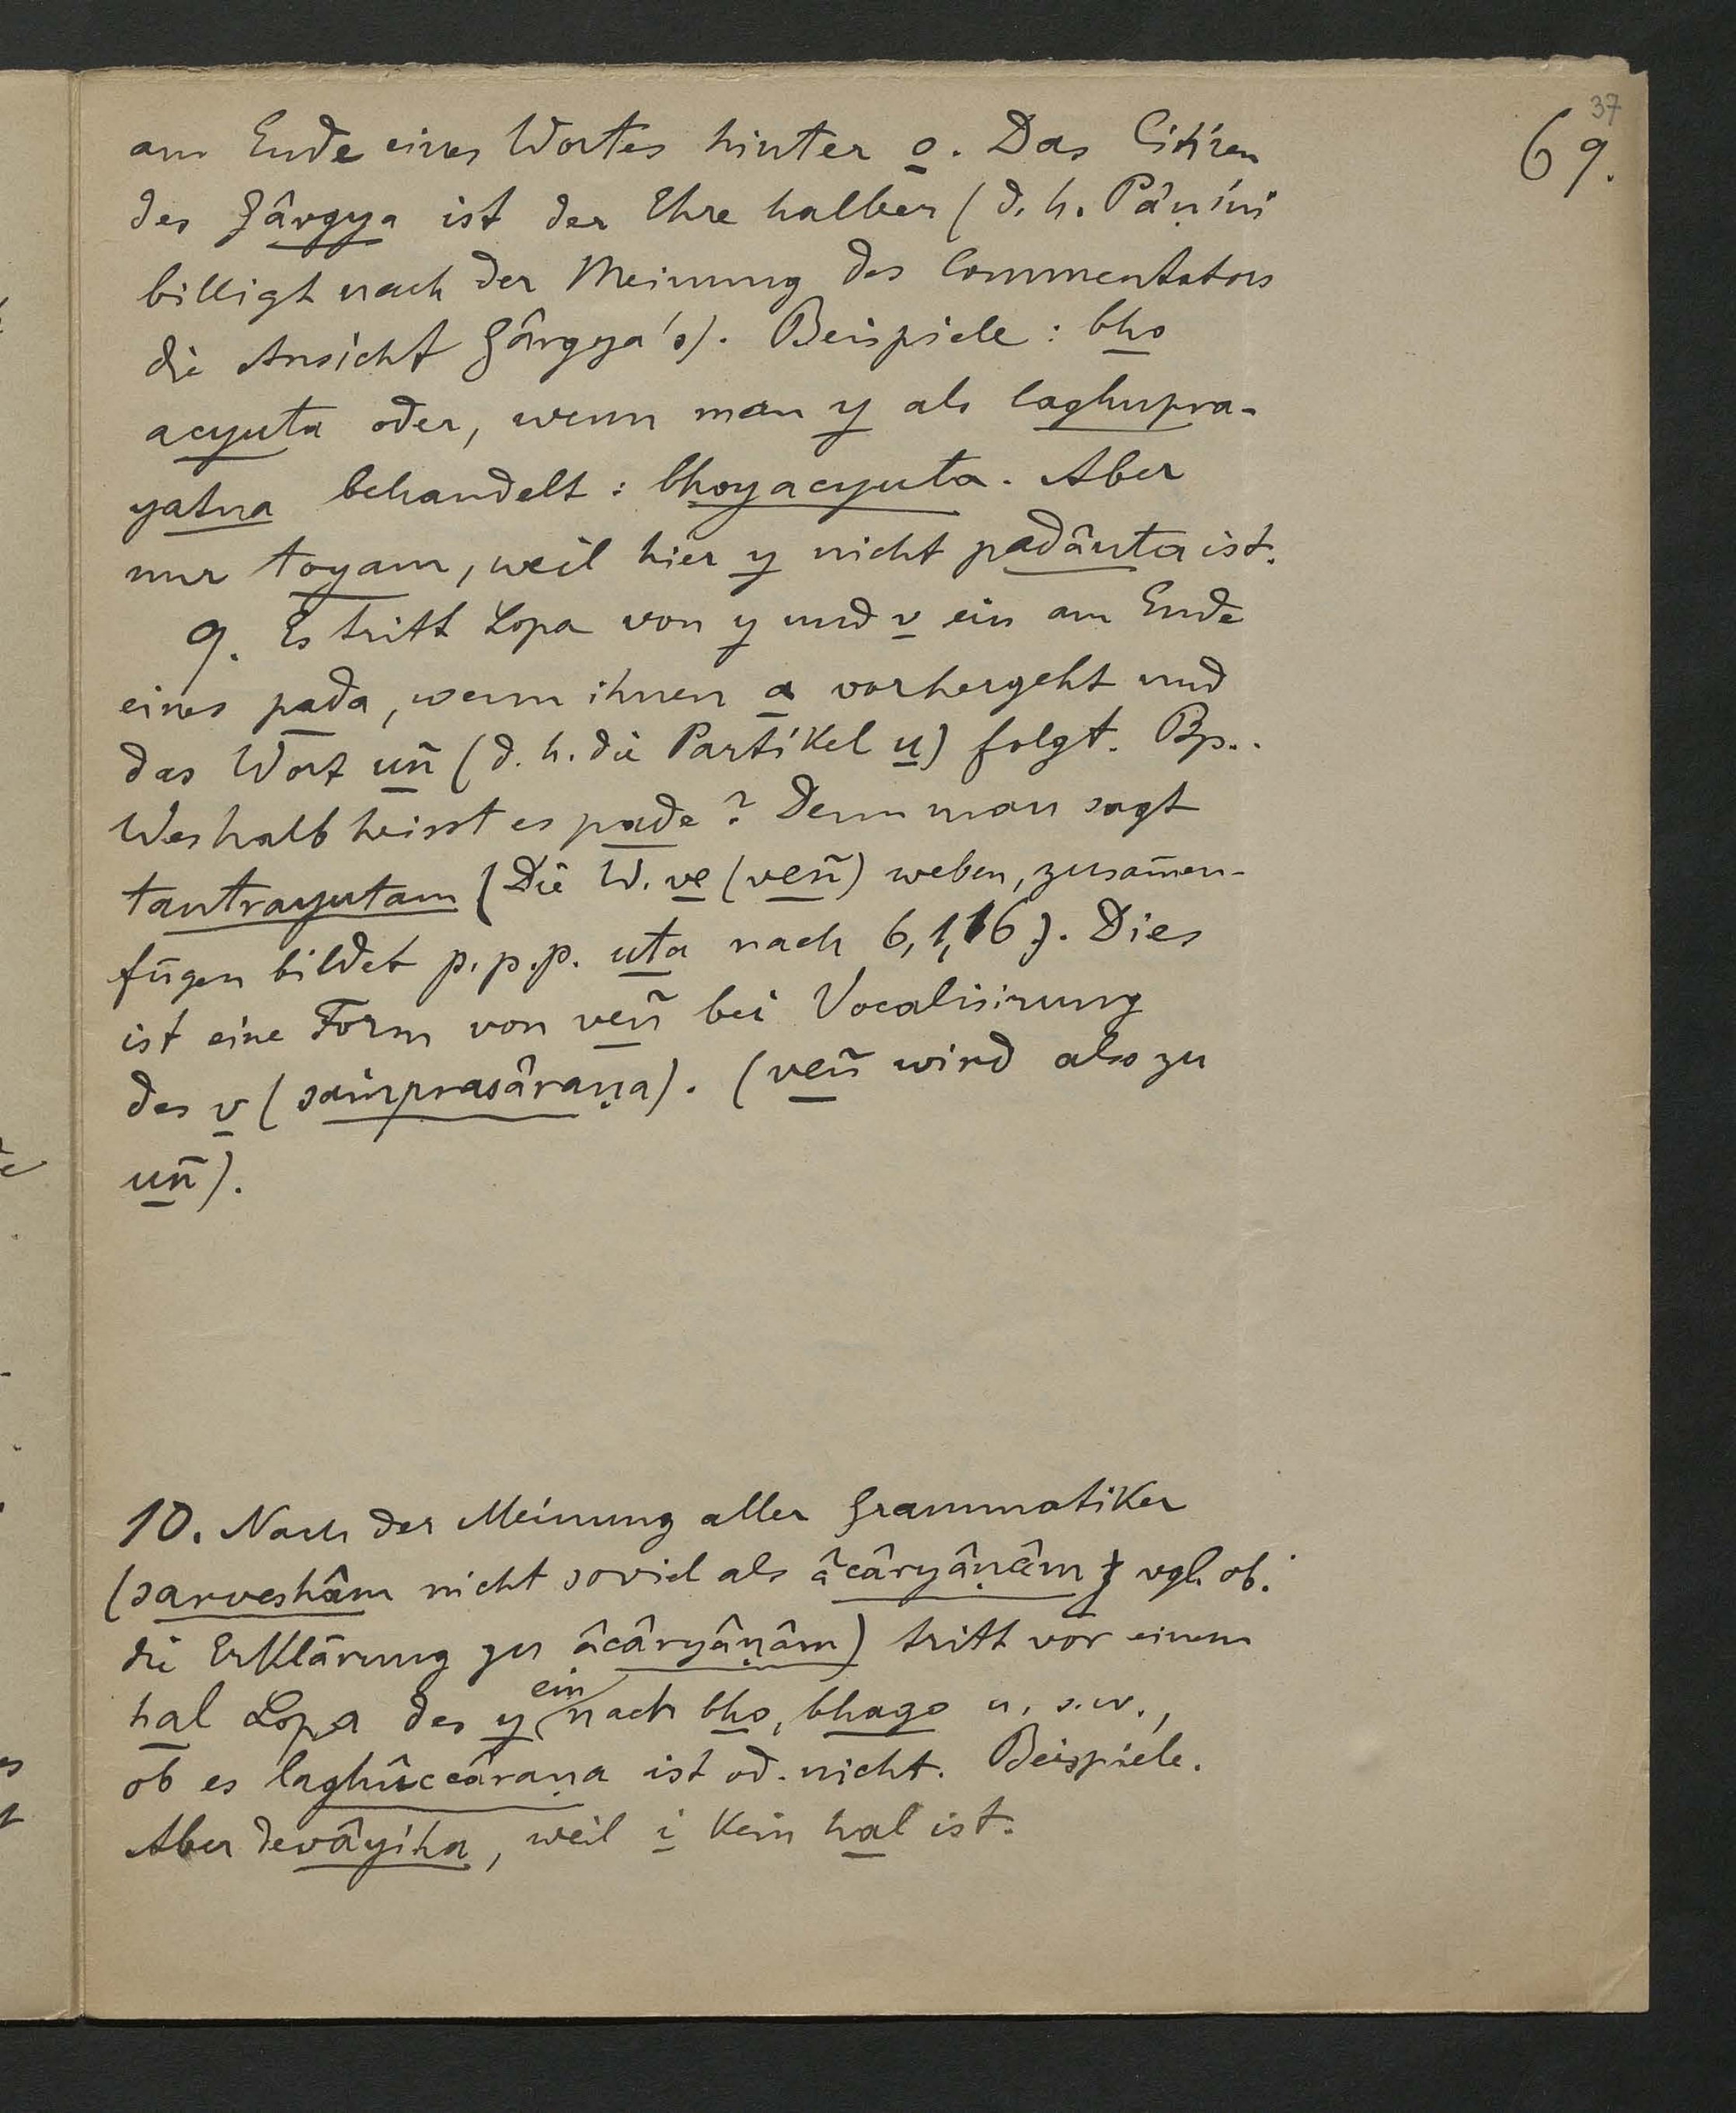 37
69.
am Ende eines Wortes hinter o. Das Citiren
des Gârgya ist der Ehre halber (d. h. Pâṇini
billigt nach der Meinung des Commentators
die Ansicht Gârgya's). Beispiele: bho
acyuta oder, wenn man y als laghupra-
yatna behandelt: bhoyacyuta. Aber
nur toyam, weil hier y nicht padânta ist.
9. Es tritt Lopa von y und v ein am Ende
eines pada, wenn ihnen a vorhergeht und
das Wort uñ (d. h. die Partikel u) folgt. Bp..
Weshalb heisst es pade? Denn man sagt
tantrayutam (Die W. ve (veñ) weben, zusam̄en-
fügen bildet p.p.p. uta nach 6,1,16). Dies
ist eine Form von veñ bei Vocalisirung
des v (saṁprasâraṇa). (veñ wird also zu
uñ).
10. Nach der Meinung aller Grammatiker
(sarveshâm nicht soviel als âcâryâṇâm vgl. ob.
die Erklärung zu âcâryâṇâm) tritt vor einem
hal Lopa des y ein nach bho, bhago u. s. w.,
ob es laghûccâraṇa ist od. nicht. Beispiele.
Aber devâyiha, weil i kein hal ist.